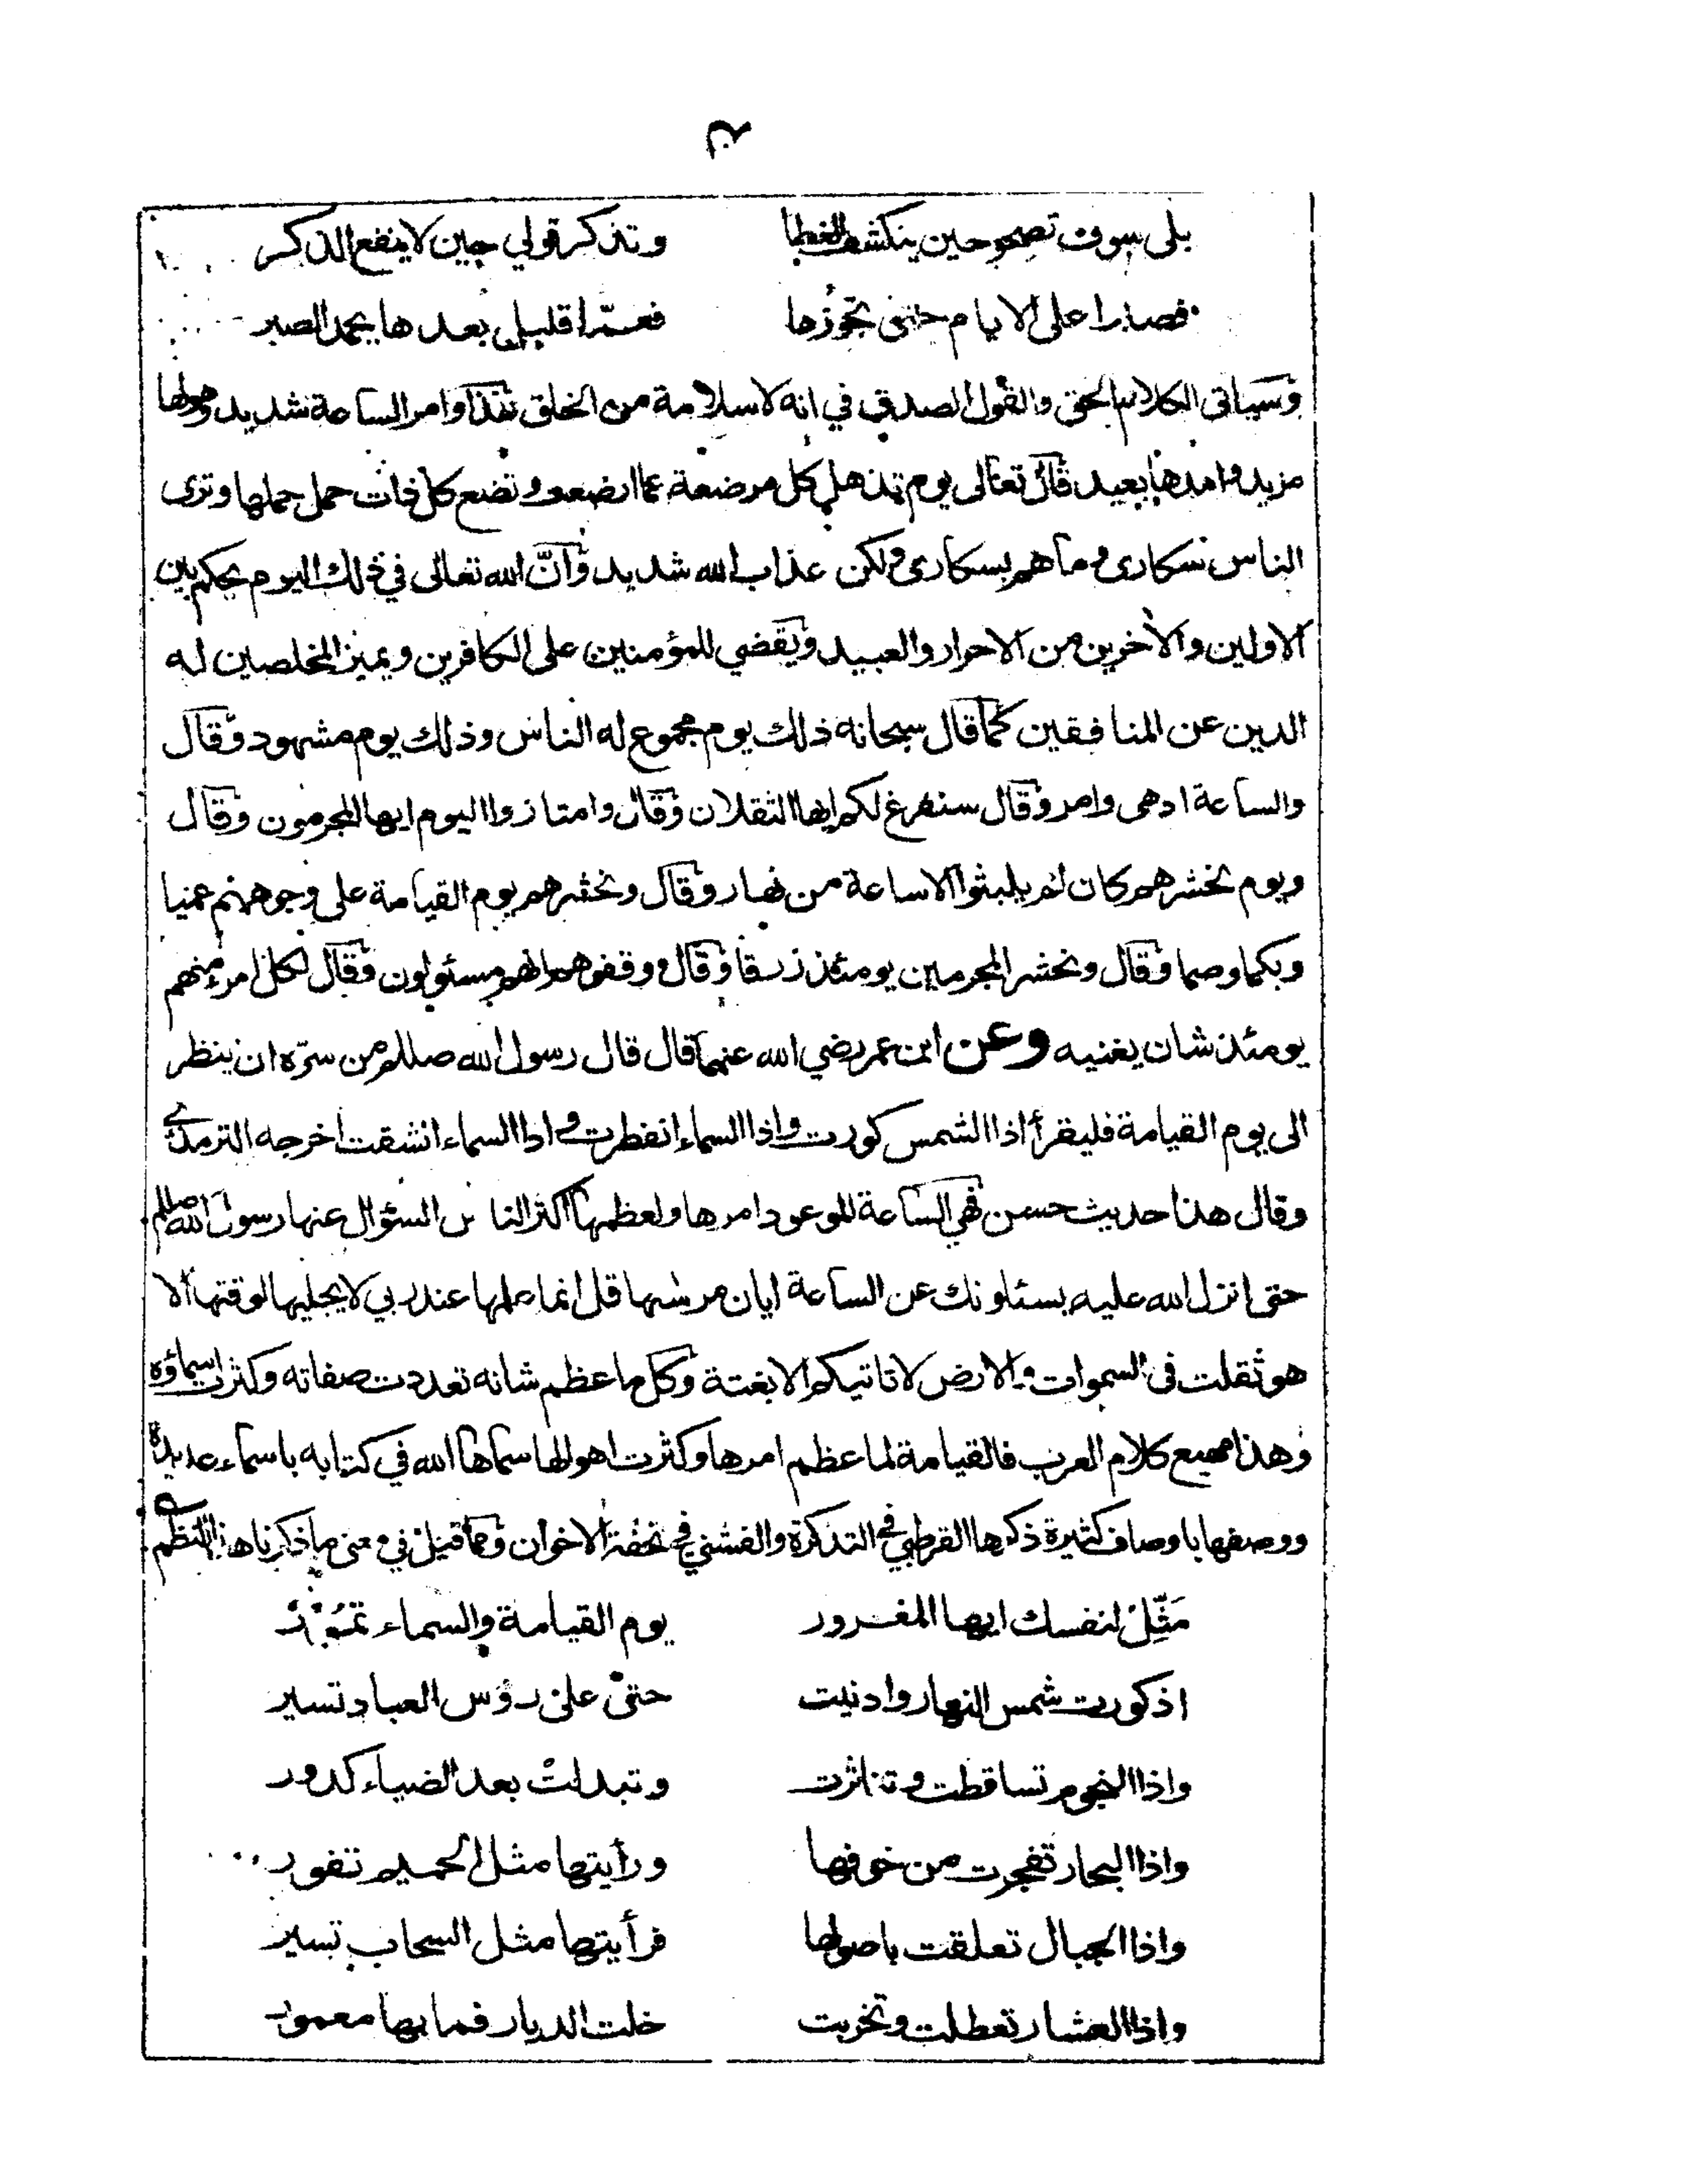 بلى سوف تصحو حين ينكشف الغطا وتذكر قولي حين لا ينفع الذكر
فصبرا على الايام حتى تجوزها فعمّا قليل بعدها يحمد الصبر
وسياتى الكلام الحق والقول الصدق في انه لا سلامة من الخلق هذا وامر الساعة شديد وهولها
مزيد وامدها بعيد قال تعالى يوم تذهل كل مرضعة عما ارضعت وتضع كل ذات حمل حملها وترى
الناس سكارى وما هم بسكارى ولكن عذاب الله شديد وانّ الله تعالى في ذلك اليوم يحكم بين
الاولين والاخرين من الاحرار والعبيد ويقضي للمؤمنين على الكافرين ويميز المخلصين له
الدين عن المنافقين كما قال سبحانه ذلك يوم مجموع له الناس وذلك يوم مشهود وقال
والساعة ادهى وامر وقال سنفرغ لكم ايها الثقلان وقال وامتازوا اليوم ايها المجرمون وقال
ويوم نحشرهم كان لم يلبثوا الا ساعة من نهار وقال ونحشرهم يوم القيامة على وجوههم عميا
وبكما وصما وقال ونحشر المجرمين يومئذ زرقا وقال وقفوهم انهم مسئولون وقال لكل امرء منهم
يومئذ شان يغنيه وعن ابن عمر رضي الله عنهما قال قال رسول الله صللم من سرّه ان ينظر
الى يوم القيامة فليقرأ اذا الشمس كورت واذا السماء انفطرت واذا السماء انشقت اخرجه الترمذي
وقال هذا حديث حسن فهي الساعة الموعود امرها ولعظمها اكثر الناس السؤال عنها رسول الله صللم
حتى انزل الله عليه يسئلونك عن الساعة ايان مرسها قل انما علمها عند ربي لا يجليها لوقتها الا
هو ثقلت فى السموات والارض لا تاتيكم الا بغتة وكل ما عظم شانه تعددت صفاته وكثرت اسماؤه
وهذا مهيع كلام العرب فالقيامة لما عظم امرها وكثرت اهوالها سماها الله في كتابه باسماء عديدة
ووصفها باوصاف كثيرة ذكرها القرطبي في التذكرة والفشني في تحفة الاخوان ومما قيل في معنى ما ذكرناه هذا النظم
مَثِّلْ لنفسك ايها المغرور يوم القيامة والسماء تمور
اذ كورت شمس النهار وادنيت حتى على رؤس العباد تسير
واذا النجوم تساقطت وتناثرت وتبدلت بعد الضياء كدور
واذا البحار تفجرت من خوفها ورأيتها مثل الحميم تفور
واذا الجبال تعلقت باصولها فرأيتها مثل السحاب تسير
واذا العشار تعطلت وتخربت خلت الديار فما بها معمور